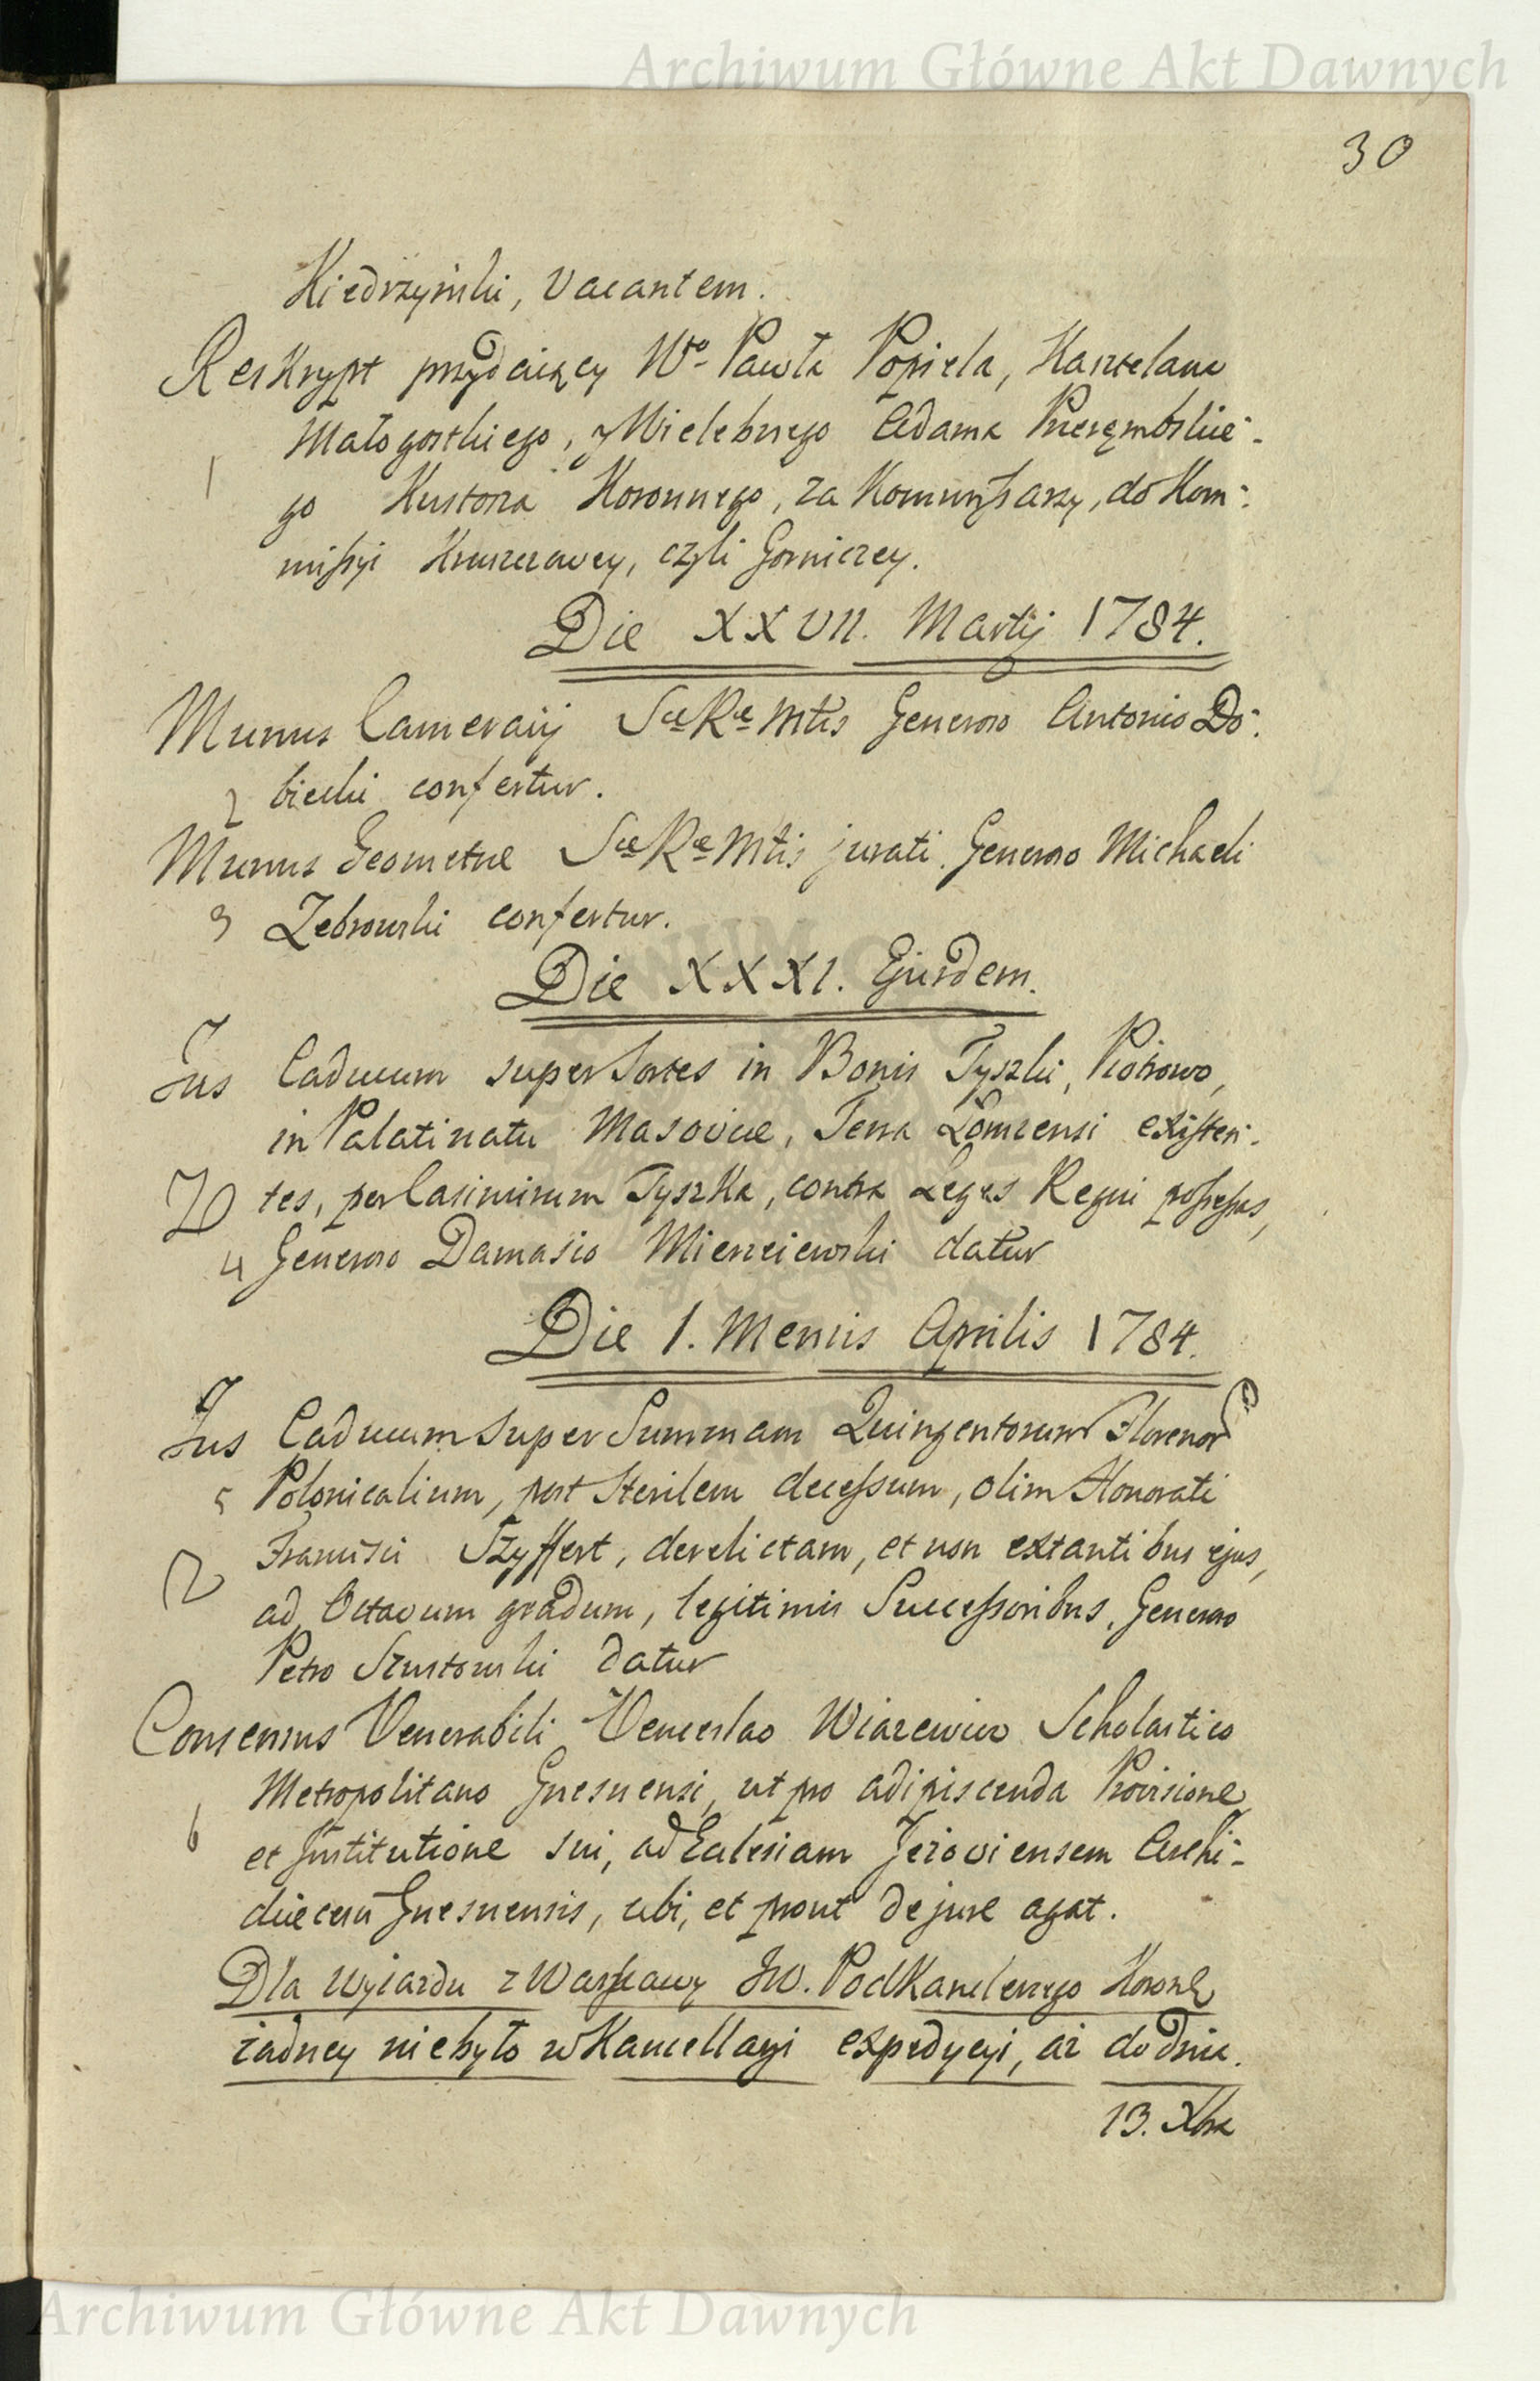 Archiwum Główne Akt Dawnych
30
Kiedrzyński, vacantem.
Reskrypt przydaiący Wo Pawła Popiela, Kasztelana
Małogoskiego, y Wielebnego Adama Przerembskie-
1 go Kustosza Koronnego, za Kommissarzy, do Kom-
missyi Kruszcowey, czyli Gorniczey.
Die XXVII. Martij 1784.
Munus Camerarij Scæ Ræ Mtis Generoso Antonio Do-
2 biecki confertur.
Munus Geometræ Scæ Ræ Mtis jurati Generoso Michaeli
3 Zebrowski confertur.
Die XXXI. Ejusdem.
Jus Caducum super Sortes in Bonis Tyszki, Piotrowo,
in Palatinatu Masoviæ, Terra Łomzensi existen-
tes, per Casimirum Tyszka, contra Leges Regni possessas,
4 Generoso Damasio Mierzeiewski datur
Die 1. Mensis Aprilis 1784.
Jus Caducum super Summam Quingentorum Florenor
5 Polonicalium, post Sterilem decessum, olim Honorati
Francisci Szyffert, derelictam, et non extantibus ejus,
ad Octavum gradum, legitimis Successoribus, Generoso
Petro Szustowski datur
Consensus Venerabili Venceslao Wiazewicz Scholastico
Metropolitano Gnesnensi, ut pro adipiscenda Provisione
6 et Institutione sui, ad Eclesiam Jezoviensem Archi-
diæcesis Gnesnensis, ubi, et prout de jure agat.
Dla wyiazdu z Warszawy JW. Podkanclerzego Koronę
żadney niebyło w Kancellaryi expedycyi, aż do dnia.
13. Xbra
Archiwum Główne Akt Dawnych